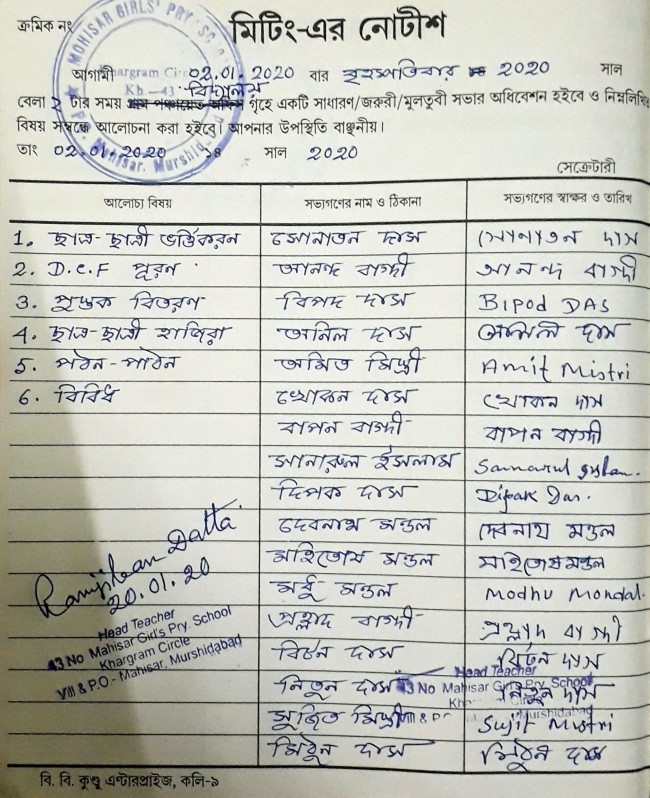 ক্রমিক নং
মিটিং-এর নোটীশ
MOHISAR GIRLS' PRY. SCHOOL
Khargram Circle
Kh.-43
Mahisar, Murshid
আগামী 02.01.2020 বার বৃহস্পতিবার 2020 সাল
বিদ্যালয়
বেলা ২ টার সময় গৃহে একটি সাধারণ/জরুরী/মুলতুবী সভার অধিবেশন হইবে ও নিম্নলিখিত
বিষয় সম্বন্ধে আলোচনা করা হইবে। আপনার উপস্থিতি বাঞ্ছনীয়।
তাং 02.01.2020 সাল 2020
সেক্রেটারী
আলোচ্য বিষয় সভ্যগণের নাম ও ঠিকানা সভ্যগণের স্বাক্ষর ও তারিখ
1. ছাত্র-ছাত্রী ভর্তিকরন সোনাতন দাস সোনাতন দাস
2. D.C.F পূরন আনন্দ বাগ্দী আনন্দ বাগ্দী
3. পুস্তক বিতরণ বিপদ দাস Bipod DAS
4. ছাত্র-ছাত্রী হাজিরা অনিল দাস অনিল দাস
5. পঠন-পাঠন অমিত মিস্ত্রী Amit Mistri
6. বিবিধ খোকন দাস খোকন দাস
বাপন বাগ্দী বাপন বাগ্দী
সানারুল ইসলাম Sannarul Islam.
দিপক দাস Dipak Das.
দেবনাথ মন্ডল দেবনাথ মন্ডল
মহিতোষ মন্ডল মহিতোষ মন্ডল
মধু মন্ডল Modhu Mondal.
প্রহ্লাদ বাগ্দী প্রহ্লাদ বাগ্দী
বিটন দাস বিটন দাস
নিতুন দাস নিতুন দাস
সুজিত মিস্ত্রী Sujit Mistri
মিঠুন দাস মিঠুন দাস
Ramjiban Datta
20.01.20
Head Teacher
43 No Mahisar Girl's Pry. School
Khargram Circle
Vill & P.O - Mahisar, Murshidabad
Head Teacher
43 No Mahisar Girl's Pry. School
Murshidabad
বি. বি. কুণ্ডু এন্টারপ্রাইজ, কলি-৯